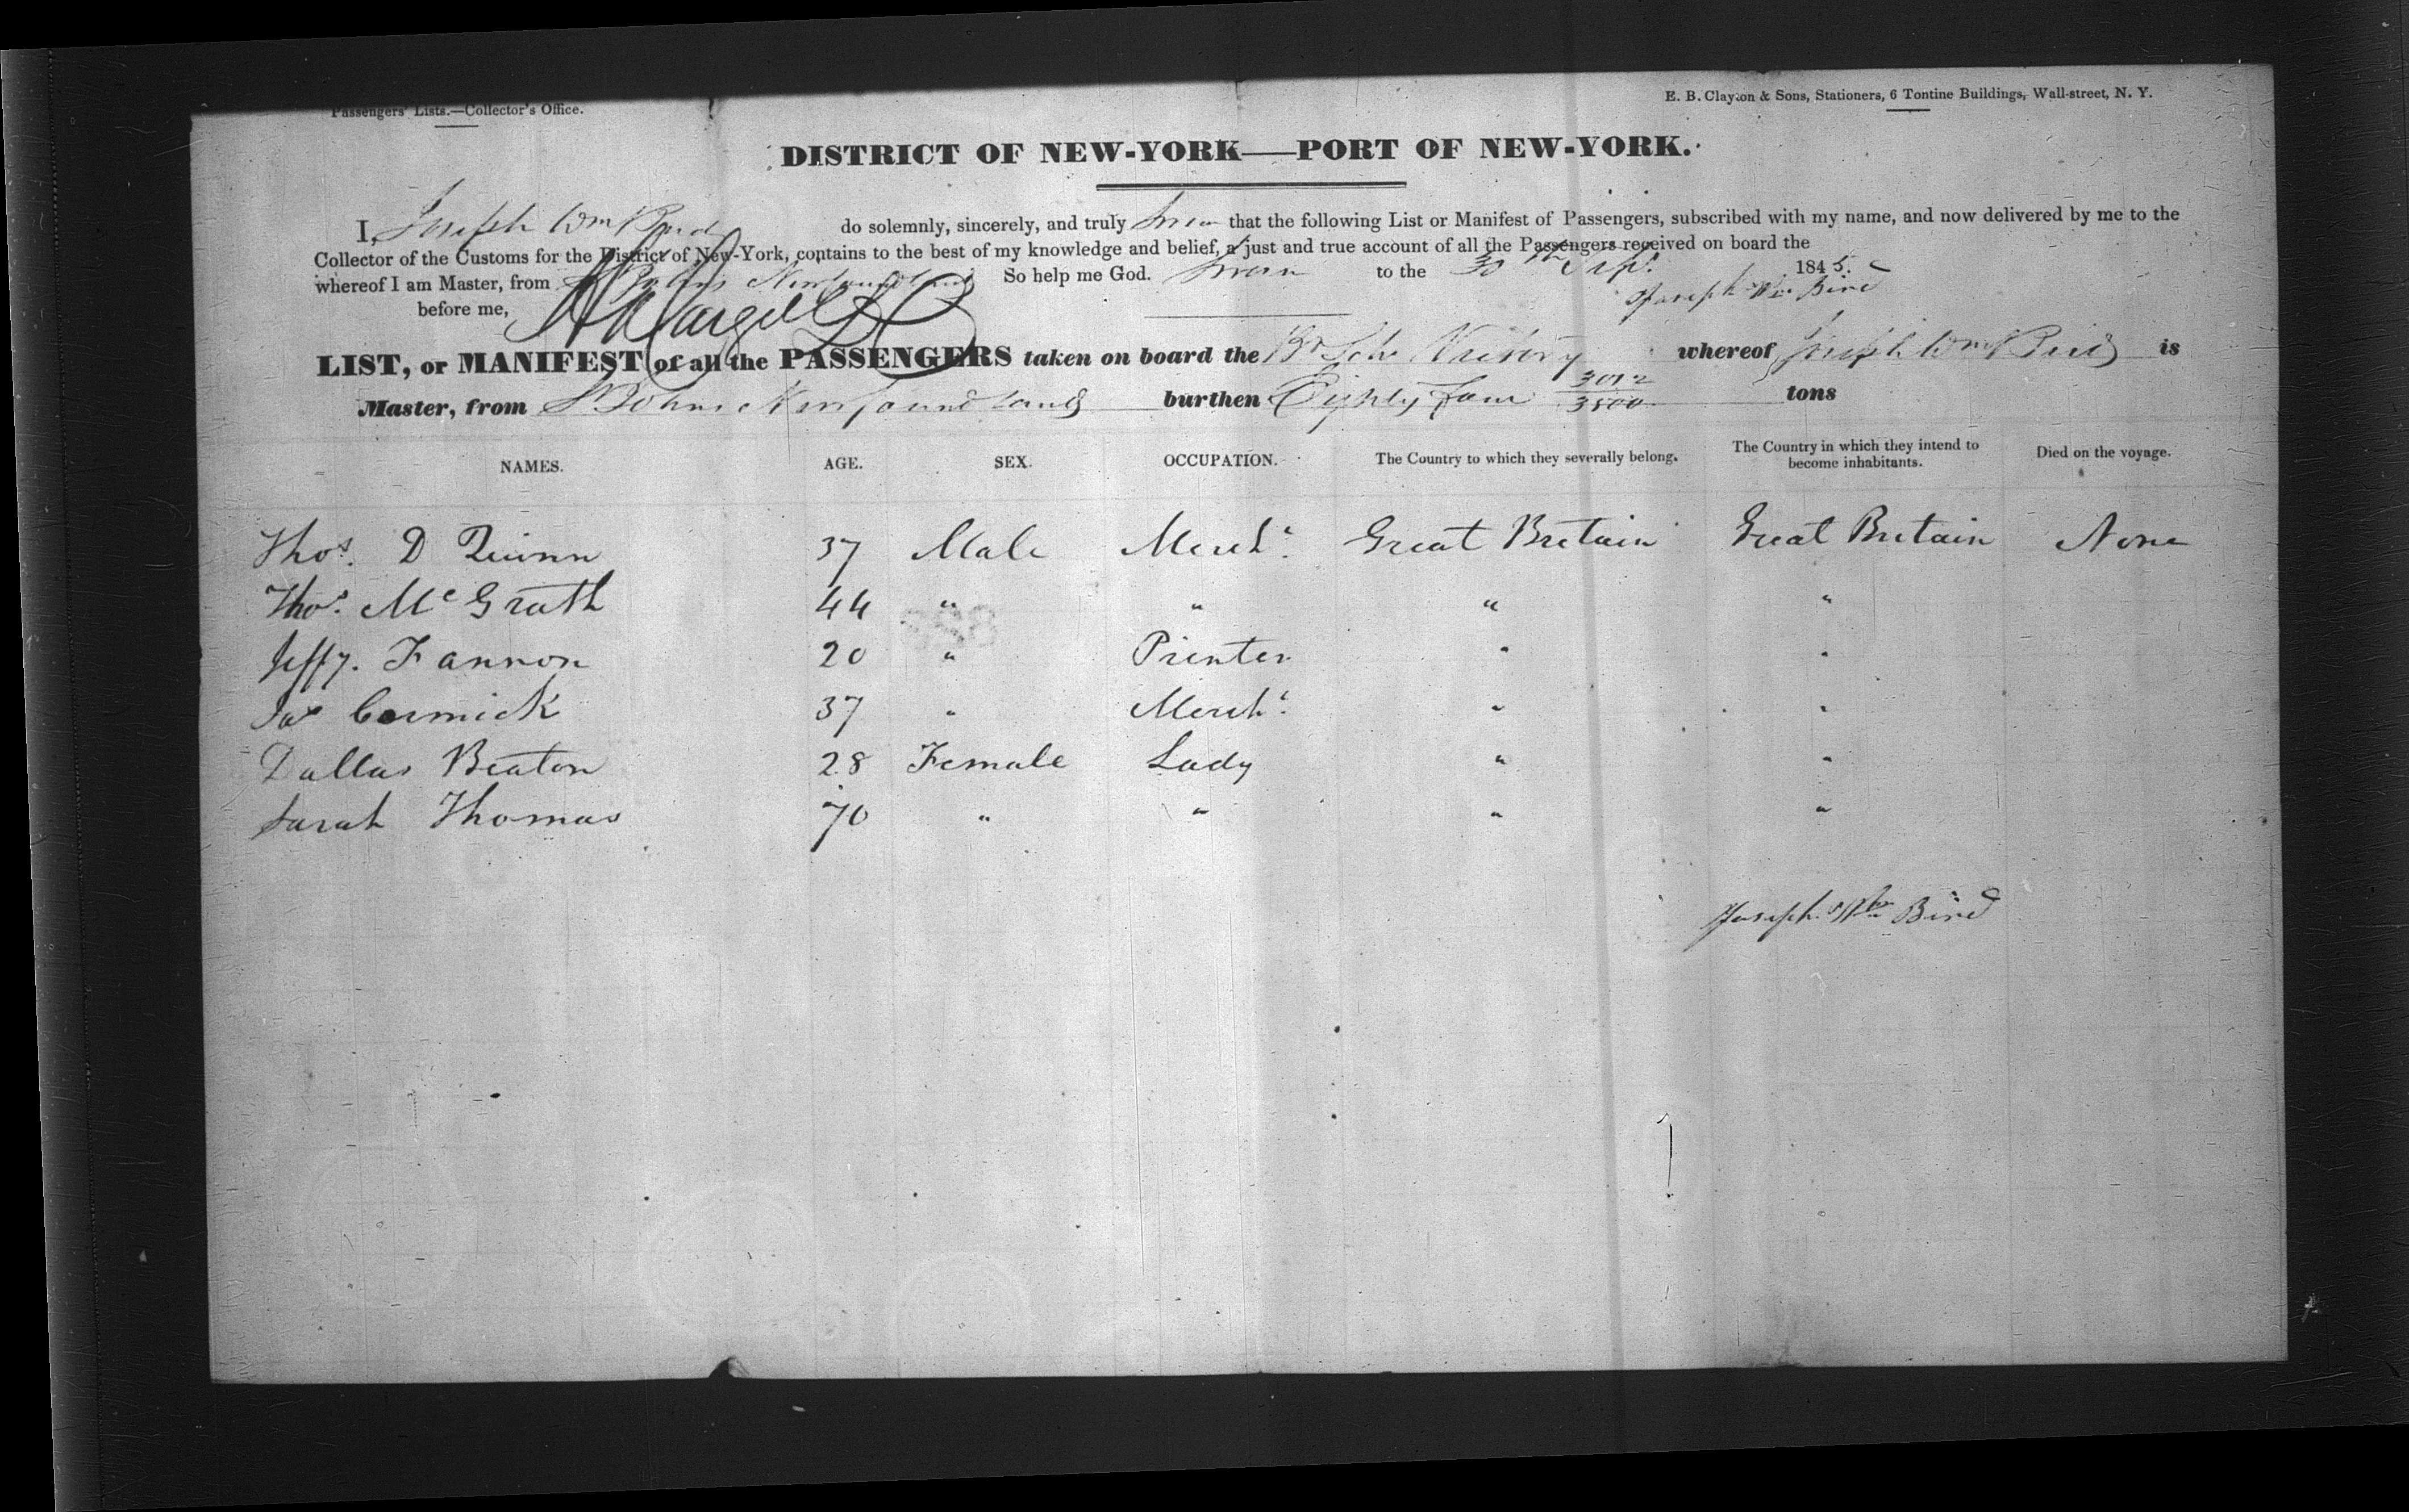 Passengers' Lists.—Collector's Office.
E. B. Clayton & Sons, Stationers, 6 Tontine Buildings, Wall-street, N. Y.
DISTRICT OF NEW-YORK—PORT OF NEW-YORK.
I, Joseph Wm Bird do solemnly, sincerely, and truly swear that the following List or Manifest of Passengers, subscribed with my name, and now delivered by me to the
Collector of the Customs for the District of New-York, contains to the best of my knowledge and belief, a just and true account of all the Passengers received on board the
whereof I am Master, from St Johns Newfoundland So help me God. Sworn to the 30th Sep. 1845.
Joseph Wm Bird
before me,
LIST, or MANIFEST of all the PASSENGERS taken on board the Br Schr whereof Joseph Wm Bird is
Master, from St Johns Newfoundland burthen Eighty Four 3012/3500 tons
NAMES. AGE. SEX. OCCUPATION. The Country to which they severally belong. The Country in which they intend to become inhabitants. Died on the voyage.
Thos. D Quinn 37 Male Mercht. Great Britain Great Britain None
Thos. McGrath 44 " " " "
Jeffy. Fannon 20 " Printer " "
Jas Cormick 37 " Mercht. " "
Dallas Beaton 28 Female Lady " "
Sarah Thomas 70 " " " "
Joseph Wm Bird